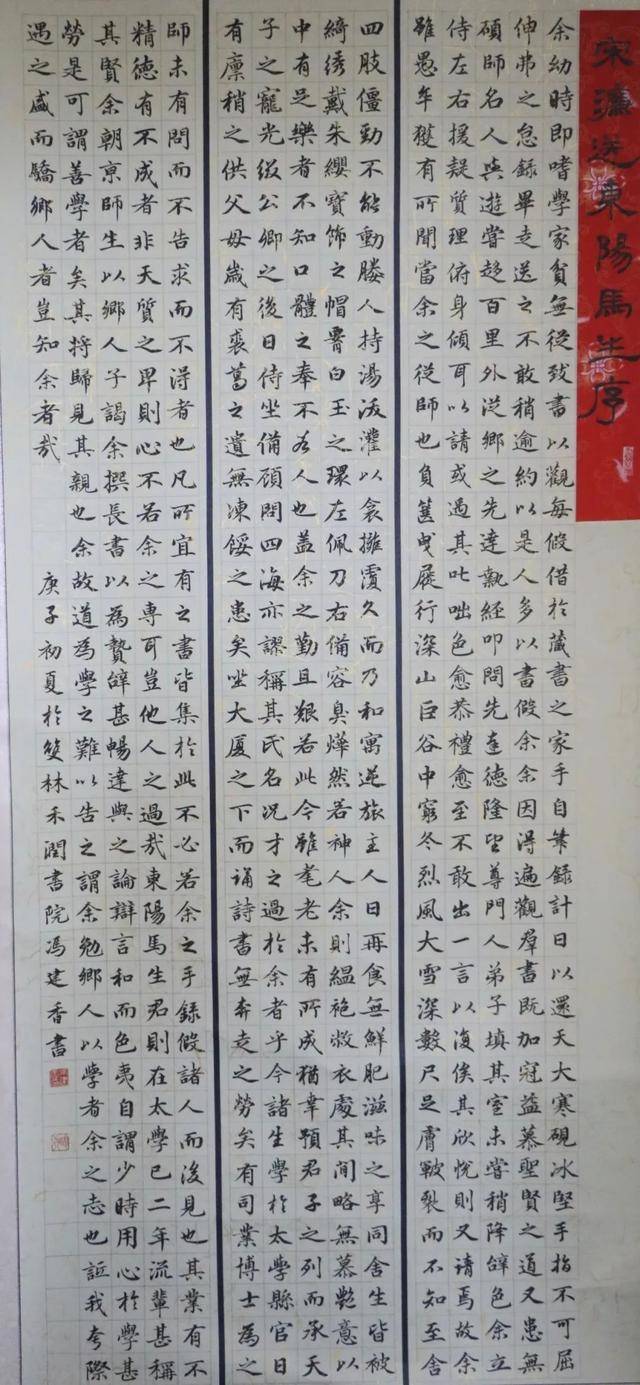 宋濂送東陽馬生序
余幼時即嗜學家貧無從致書以觀每假借於藏書之家手自筆錄計日以還天大寒硯冰堅手指不可屈
伸弗之怠錄畢走送之不敢稍逾約以是人多以書假余余因得遍觀羣書既加冠益慕聖賢之道又患無
碩師名人與遊嘗趨百里外從鄉之先達執經叩問先達德隆望尊門人弟子填其室未嘗稍降辭色余立
侍左右援疑質理俯身傾耳以請或遇其叱咄色愈恭禮愈至不敢出一言以復俟其欣悅則又请焉故余
雖愚卒獲有所聞當余之從師也負篋曳屣行深山巨谷中窮冬烈風大雪深數尺足膚皸裂而不知至舍
四肢僵勁不能動媵人持湯沃灌以衾擁覆久而乃和寓逆旅主人日再食無鮮肥滋味之享同舍生皆被
綺绣戴朱纓寶飾之帽腰白玉之環左佩刀右備容臭燁然若神人余則縕袍敝衣處其間略無慕艷意以
中有足樂者不知口體之奉不若人也盖余之勤且艱若此今雖耄老未有所成猶幸預君子之列而承天
子之寵光綴公卿之後日侍坐備顧問四海亦謬稱其氏名況才之過於余者乎今諸生學於太學縣官日
有廩稍之供父母歲有裘葛之遺無凍餒之患矣坐大厦之下而誦詩書無奔走之勞矣有司業博士為之
師未有問而不告求而不得者也凡所宜有之書皆集於此不必若余之手錄假諸人而後見也其業有不
精德有不成者非天質之卑則心不若余之專耳豈他人之過哉東陽馬生君則在太學已二年流輩甚稱
其賢余朝京師生以鄉人子謁余撰長書以為贄辭甚暢達與之論辯言和而色夷自謂少時用心於學甚
勞是可謂善學者矣其將歸見其親也余故道為學之難以告之謂余勉鄉人以學者余之志也詆我夸際
遇之盛而驕鄉人者豈知余者哉
庚子初夏於雙林禾潤書院馮建香書